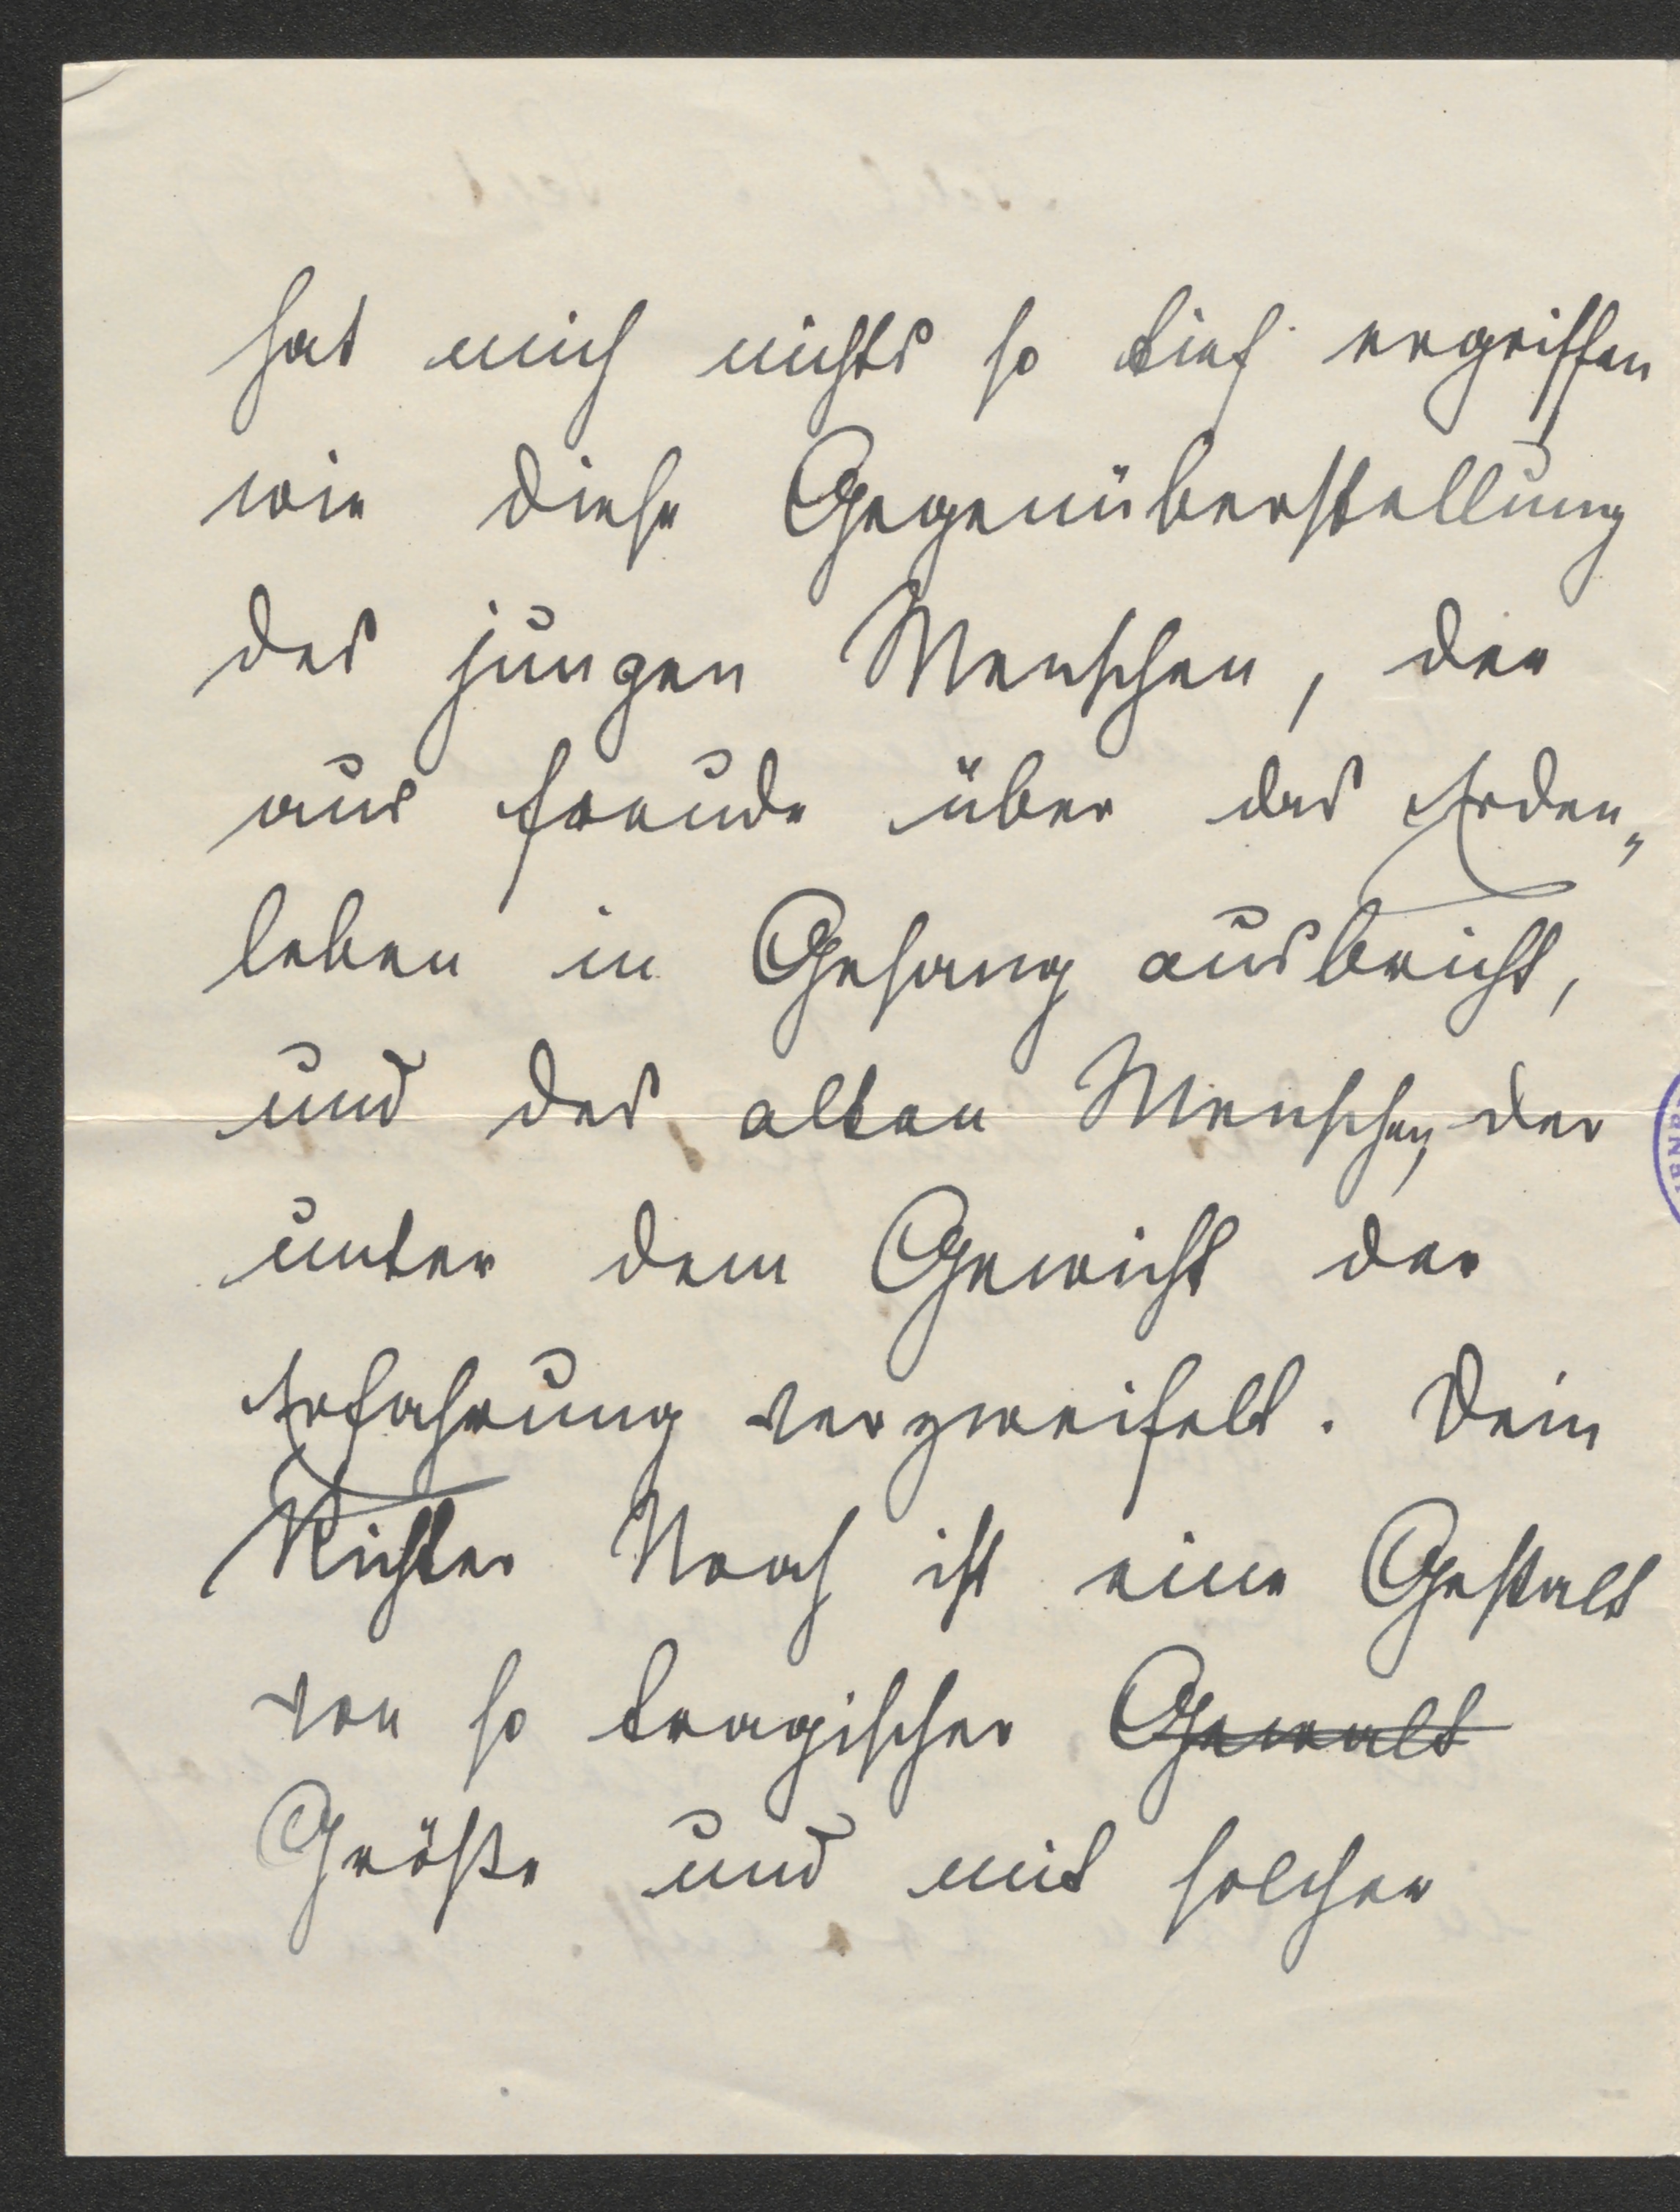 hat mich nichts so tief ergriffen
wie diese Gegenüberstellung
des jungen Menschen, der
aus Freude über das Erden„
leben in Gesang ausbricht,
und des alten Menschen, der
unter dem Gewicht der
Erfahrung verzweifelt. Dein
Richter Noah ist eine Gestalt
von so tragischer Gewalt
Größe und mit solcher